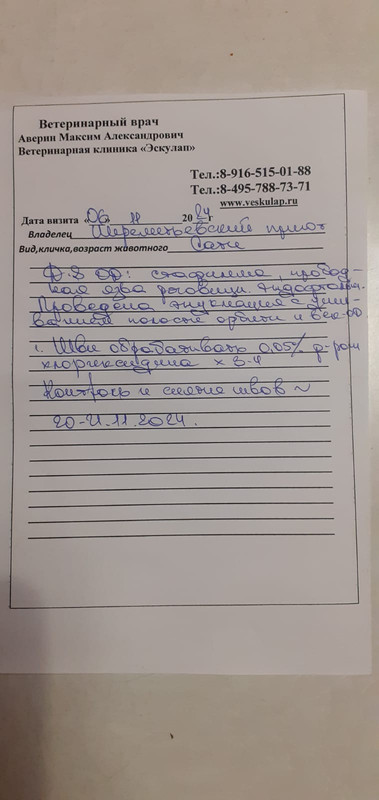 Ветеринарный врач
Аверин Максим Александрович
Ветеринарная клиника «Эскулап»
Тел.:8-916-515-01-88
Тел.:8-495-788-73-71
www.veskulap.ru
Дата визита «06» 11 2024 г
Владелец Шереметьевский приют
Вид,кличка,возраст животного Сати
D.S OD: стафилома, пробод-
ная язва роговицы. Эндофтальм.
Проведена энуклеация с уши-
ванием полости орбиты и век OD
1. Швы обрабатывать 0,05% р-ром
хлоргексидина х 3-4
Контроль и снятие швов ~
20-21.11.2024.